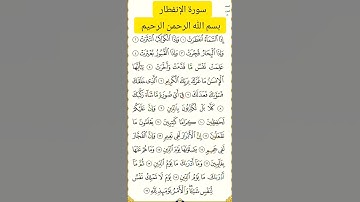 سورة الإنفطار
بسم الله الرحمن الرحيم
إِذَا ٱلسَّمَآءُ ٱنفَطَرَتْ ۝ وَإِذَا ٱلْكَوَاكِبُ ٱنتَثَرَتْ ۝
وَإِذَا ٱلْبِحَارُ فُجِّرَتْ ۝ وَإِذَا ٱلْقُبُورُ بُعْثِرَتْ ۝
عَلِمَتْ نَفْسٌ مَّا قَدَّمَتْ وَأَخَّرَتْ ۝ يَٰٓأَيُّهَا
ٱلْإِنسَٰنُ مَا غَرَّكَ بِرَبِّكَ ٱلْكَرِيمِ ۝ ٱلَّذِى خَلَقَكَ
فَسَوَّىٰكَ فَعَدَلَكَ ۝ فِىٓ أَىِّ صُورَةٍ مَّا شَآءَ رَكَّبَكَ
۝ كَلَّا بَلْ تُكَذِّبُونَ بِٱلدِّينِ ۝ وَإِنَّ عَلَيْكُمْ
لَحَٰفِظِينَ ۝ كِرَامًا كَٰتِبِينَ ۝ يَعْلَمُونَ مَا
تَفْعَلُونَ ۝ إِنَّ ٱلْأَبْرَارَ لَفِى نَعِيمٍ ۝ وَإِنَّ ٱلْفُجَّارَ
لَفِى جَحِيمٍ ۝ يَصْلَوْنَهَا يَوْمَ ٱلدِّينِ ۝ وَمَا هُمْ عَنْهَا
بِغَآئِبِينَ ۝ وَمَآ أَدْرَىٰكَ مَا يَوْمُ ٱلدِّينِ ۝ ثُمَّ مَآ
أَدْرَىٰكَ مَا يَوْمُ ٱلدِّينِ ۝ يَوْمَ لَا تَمْلِكُ نَفْسٌ
لِّنَفْسٍ شَيْـًٔا وَٱلْأَمْرُ يَوْمَئِذٍ لِّلَّهِ ۝